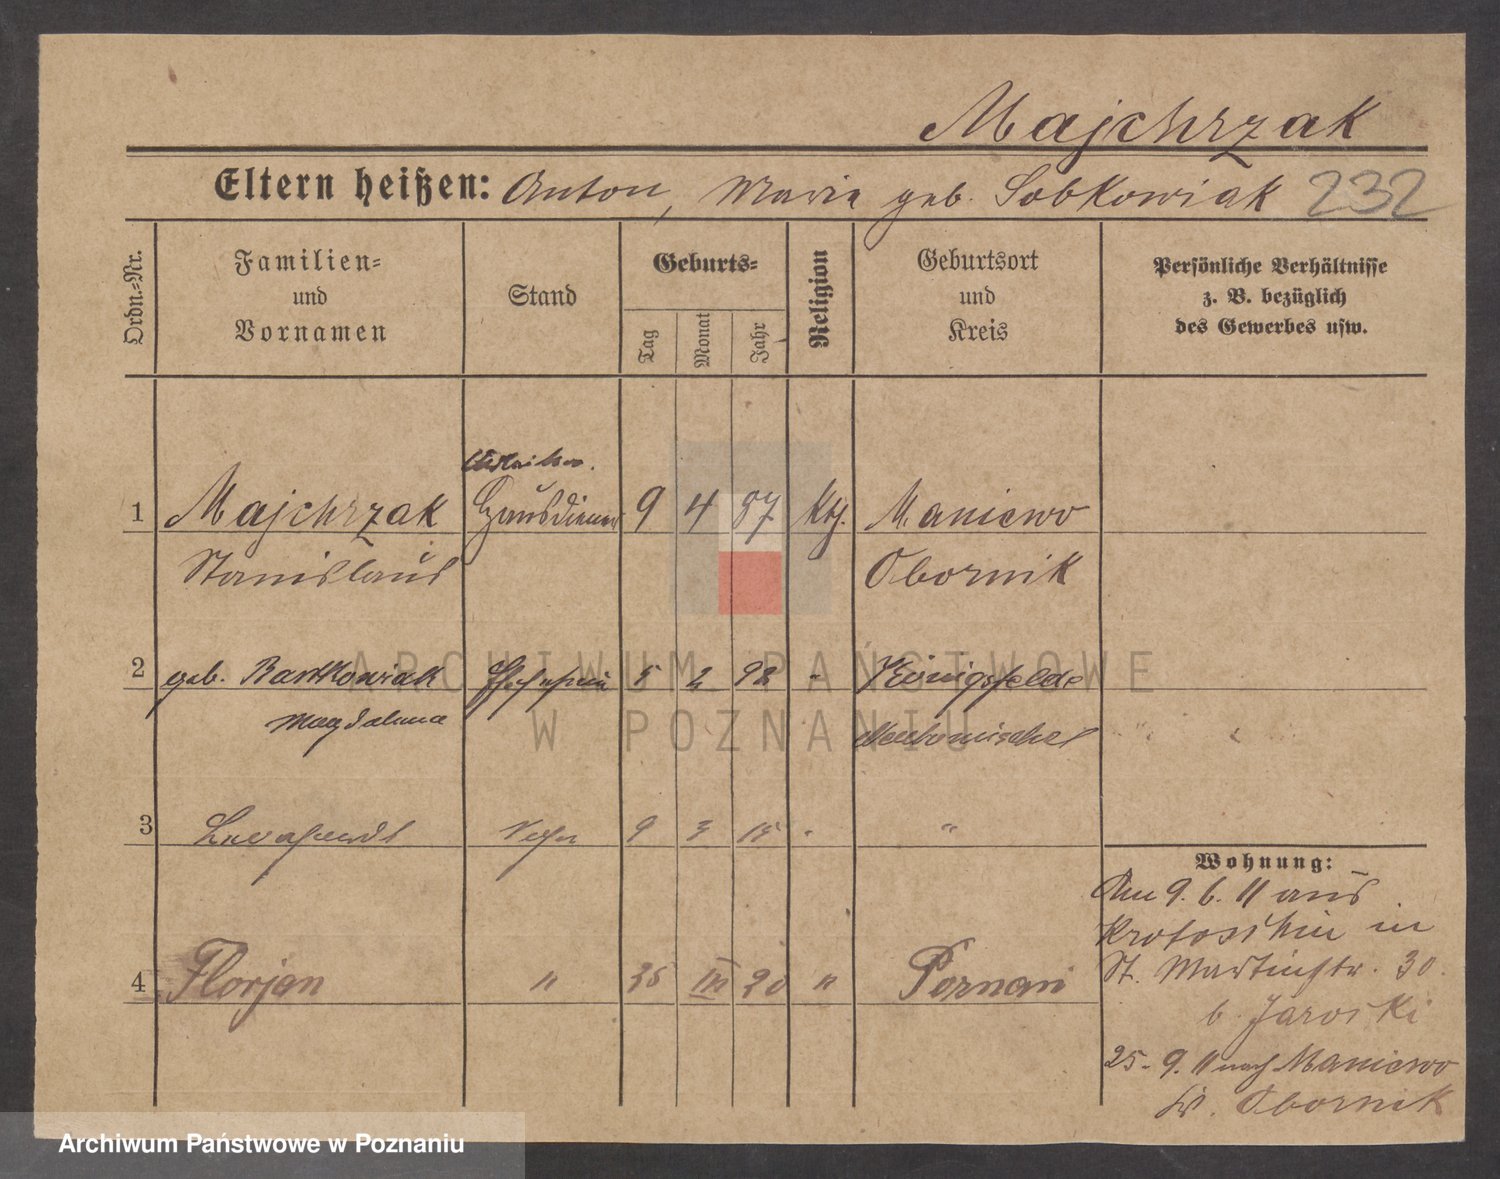 Majchrzak
Eltern heißen: Anton, Maria geb. Sobkowiak 232
Ordn.-Nr.
Familien-
und
Vornamen
Stand
Geburts-
Tag
Monat
Jahr
Religion
Geburtsort
und
Kreis
Persönliche Verhältnisse
z. B. bezüglich
des Gewerbes usw.
1 Majchrzak Hausdiener 9 4 87 Kth. Maniewo
Stanislaus Obornik
2 geb. Bartkowiak Ehefrau 5 2 92 " Königsfelde
Magdalena Neutomischel
3 9 3 15 " "
4 Florjan " 25 III 20 " Poznań
Wohnung:
Am 9. 6. 11 aus
Krotoschin in
St. Martinstr. 30.
b. Jaroski
25. 9. 11 nach Maniewo
Kr. Obornik
ARCHIWUM PAŃSTWOWE
W POZNANIU
Archiwum Państwowe w Poznaniu